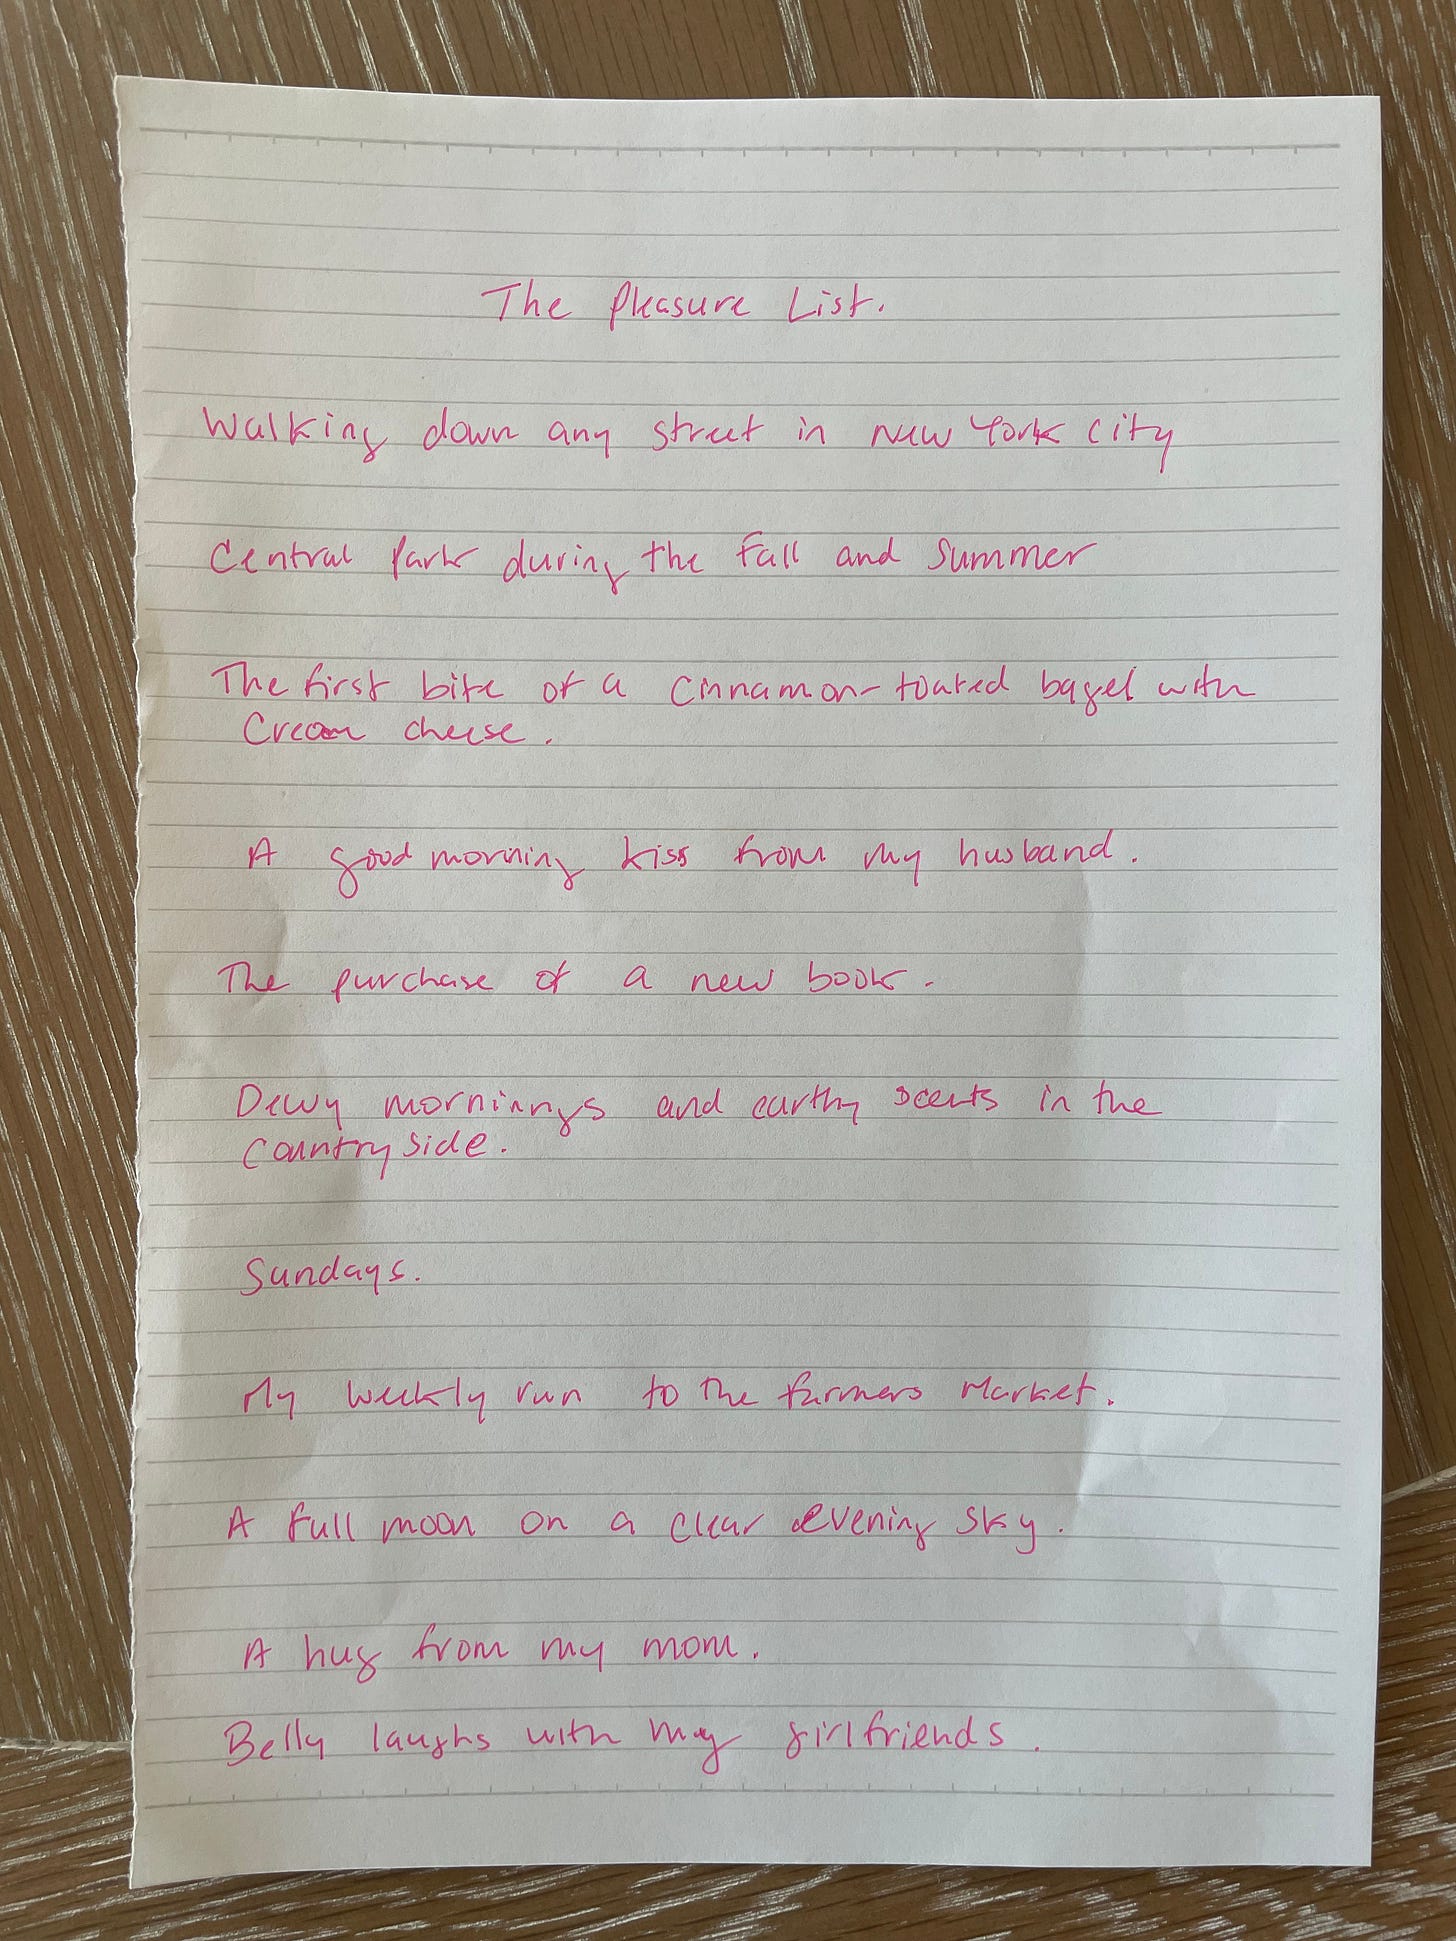 The Pleasure List.
Walking down any street in New York City
Central Park during the Fall and Summer
The first bite of a cinnamon-toasted bagel with
Cream cheese.
A good morning kiss from my husband.
The purchase of a new book.
Dewy mornings and earthy scents in the
countryside.
Sundays.
My weekly run to the farmers market.
A full moon on a clear evening sky.
A hug from my mom.
Belly laughs with my girlfriends.